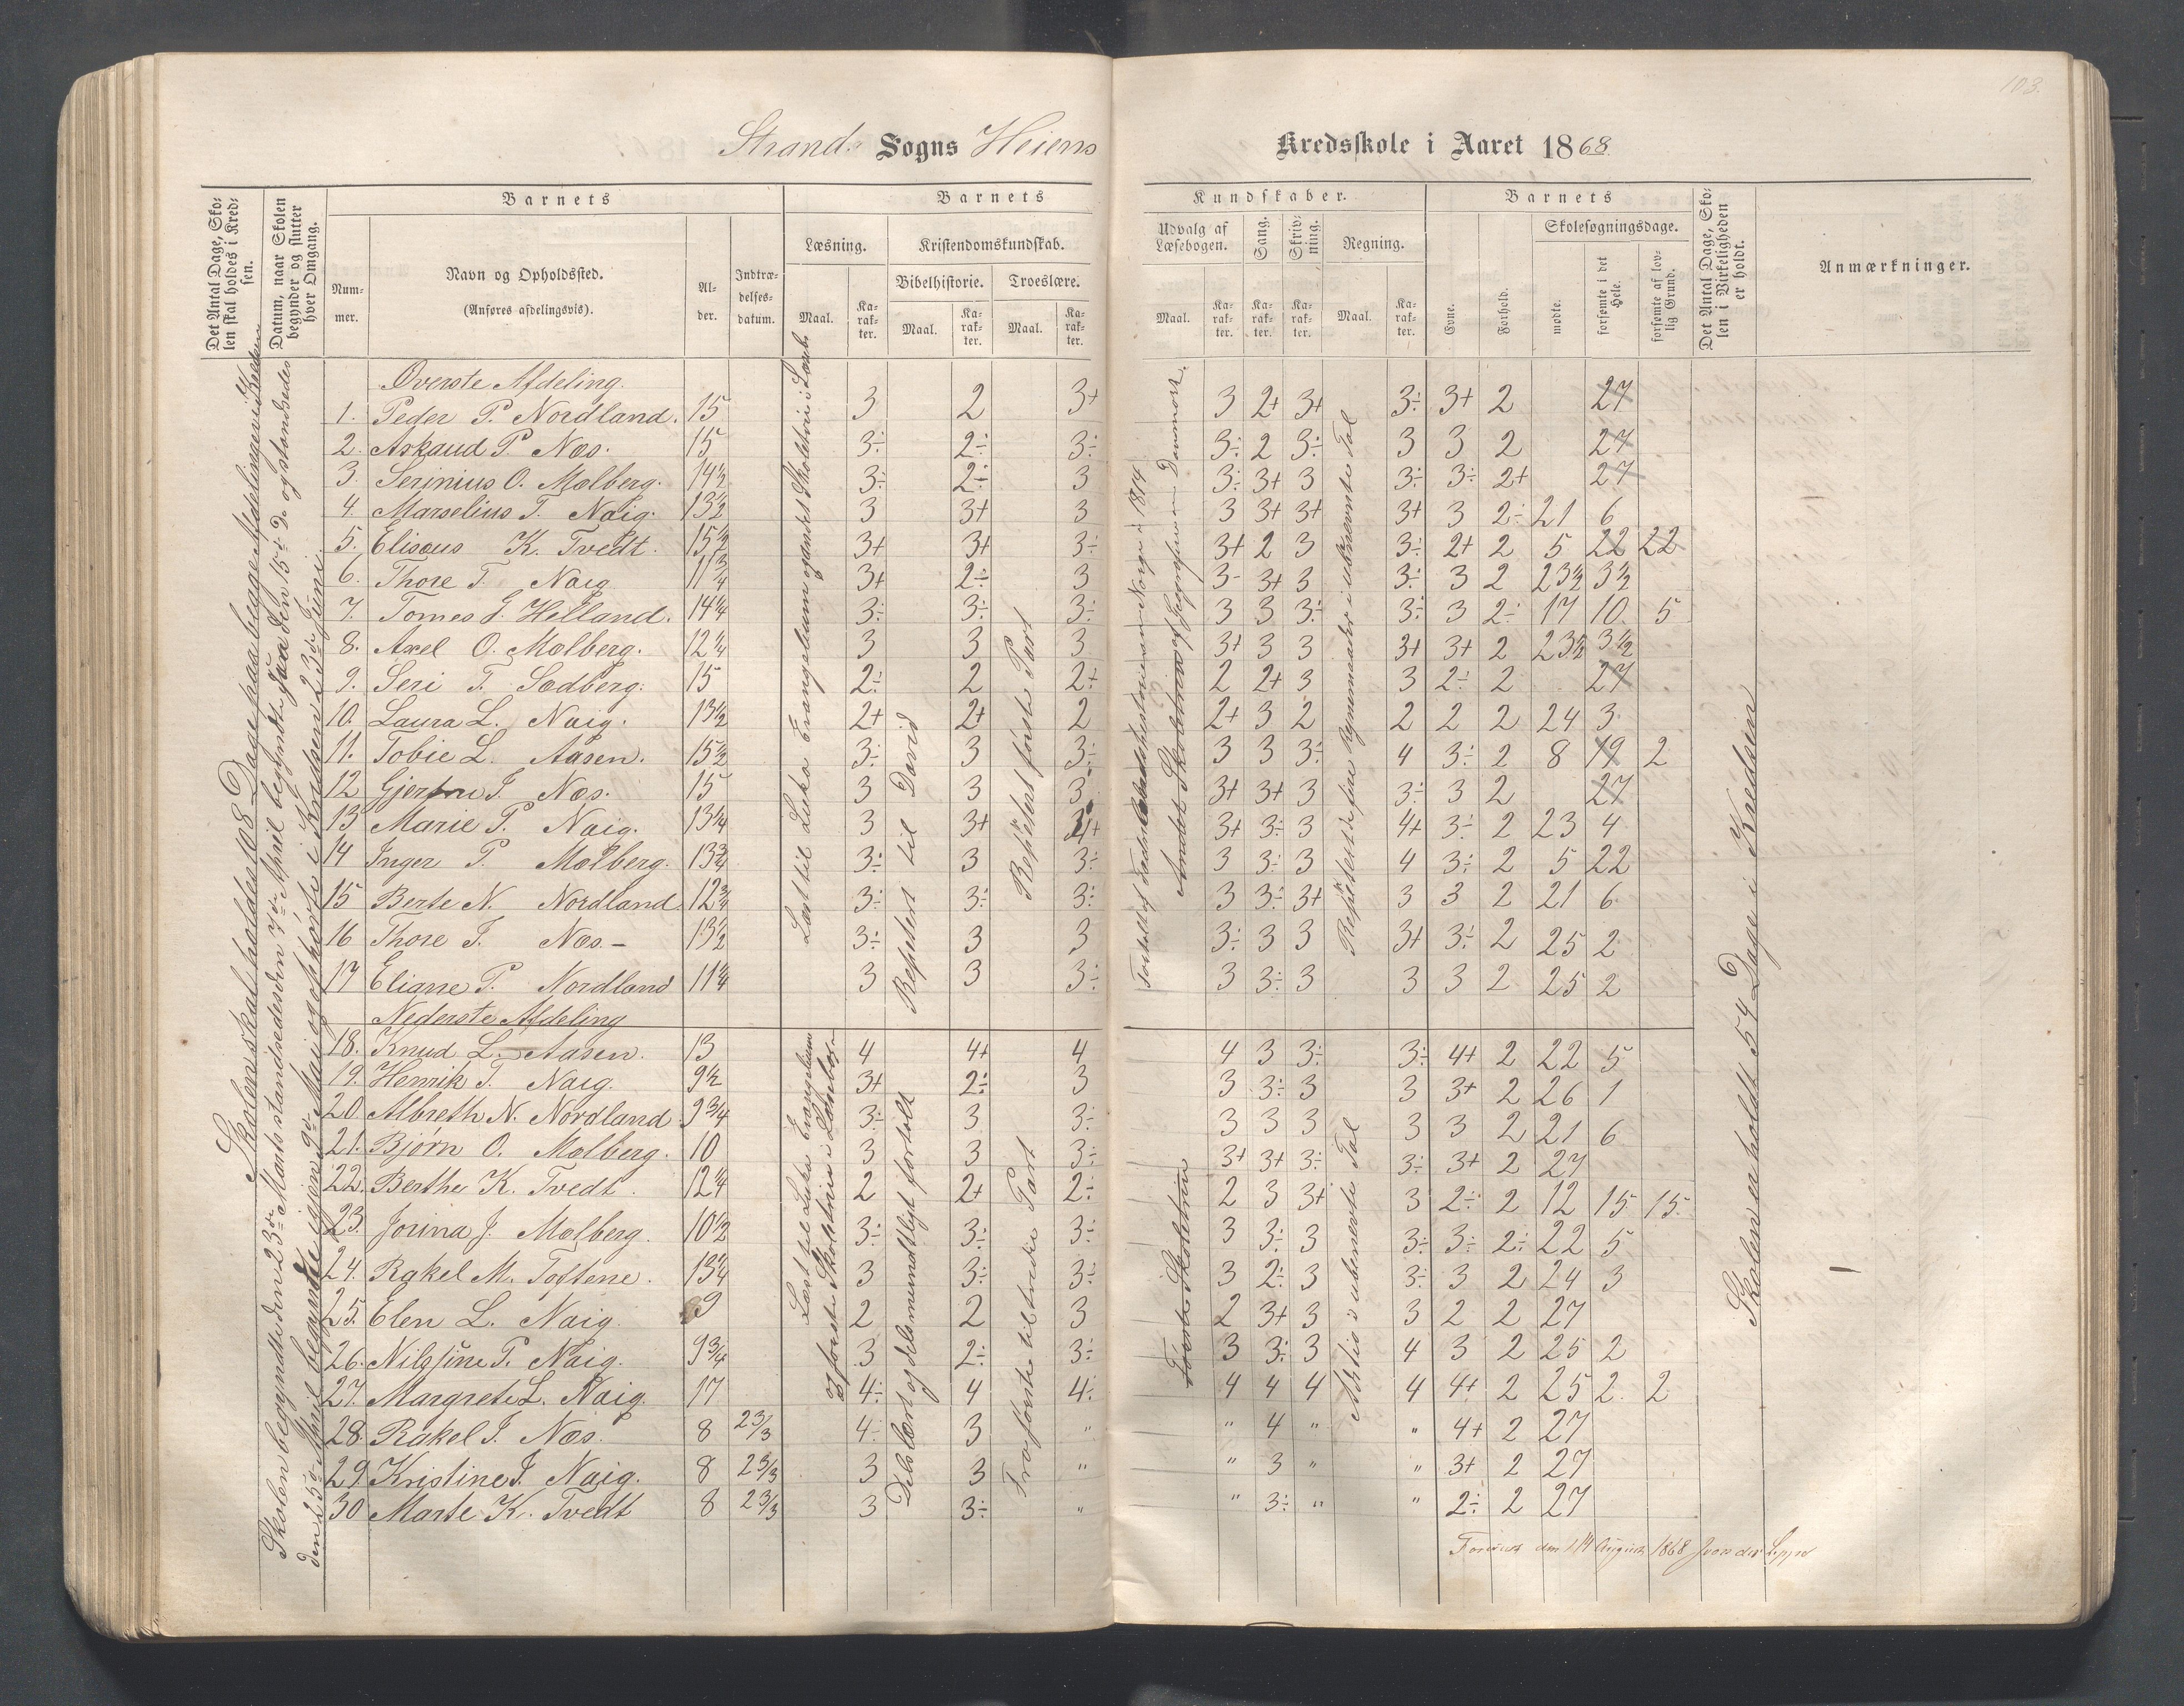 103.
Strand Sogns Heiens Kredsskole i Aaret 1868.
Det Antal Dage, Skolen skal holdes i Kredsen.
Datum, naar Skolen begynder og slutter hver Omgang.
Barnets
Nummer.
Navn og Opholdssted.
(Anføres afdelingsvis).
Alder.
Indtrædelsesdatum.
Barnets
Læsning.
Maal.
Karakter.
Kristendomskundskab.
Bibelhistorie.
Maal.
Karakter.
Troeslære.
Maal.
Karakter.
Kundskaber.
Udvalg af Læsebogen.
Maal.
Karakter.
Sang.
Karakter.
Skrivning.
Karakter.
Regning.
Maal.
Karakter.
Barnets
Evne.
Forhold.
Skolesøgningsdage.
mødte.
forsømte i det Hele.
forsømte af lovlig Grund.
Det Antal Dage, Skolen i Virkeligheden er holdt.
Anmærkninger.
Skolen skal holdes 108 Dage paa begge Afdelinger i Kredsen
Skolen begyndte den 23de Marts standsedes den 7de April begyndte paa den 15de Do og standsedes
den 25de April begyndte igjen 9de Mai og ophørte i Kredsen 23de Juni.
Øverste Afdeling.
1. Peder P. Nordland. 15 3 2 3+ 3 2+ 3+ 3÷ 3+ 2 27
2. Askaud P. Næs. 15 3÷ 2÷ 3÷ 3÷ 2 3÷ 3 3 2 27
3. Serinius O. Molberg. 14½ 3÷ 2÷ 3 3÷ 3+ 3 3÷ 3÷ 2+ 27
4. Marselius T. Naig. 13½ 3 3+ 3 3 3+ 3+ 3+ 3 2÷ 21 6
5. Elisæus K. Tvedt. 15½ 3+ 3+ 3÷ 3+ 2 3 3÷ 2+ 2 5 22 22
6. Thore T. Naig 11¾ 3+ 2÷ 3 3- 3+ 3 3÷ 3 2 23½ 3½
7. Tomes J. Helland. 14¼ 3÷ 3÷ 3÷ 3 3 3÷ 3÷ 3 2÷ 17 10 5
8. Axel O. Molberg. 12¼ 3 3 3 3+ 3 3 3+ 3+ 2 23½ 3½
9. Seri T. Sodberg. 15 2÷ 2 2+ 2 2+ 3 3 2÷ 2 27
10. Laura L. Naig. 13½ 2+ 2+ 2 2+ 3 2 2 2 2 24 3
11. Tobie L. Aasen. 15½ 3÷ 3 3÷ 3 3 3÷ 4 3÷ 2 8 19 2
12 J. Næs. 15 3 3 3 3+ 3+ 3 3÷ 3 2 27
13 Marie P. Naig. 13¼ 3 3+ 4+ 3+ 3÷ 3 4+ 3÷ 2 23 4
14 Inger P. Molberg. 13¾ 3÷ 3 3÷ 3 3÷ 3 4 3÷ 2 5 22
15 Berte N. Nordland 12¾ 3÷ 3÷ 3÷ 3 3÷ 3+ 3 3 2 21 6
16 Thore J. Næs. 13½ 3÷ 3 3 3÷ 3 3 3+ 3÷ 2 25 2
17 Eliane P. Nordland 11¼ 3 3 3÷ 3 3÷ 3 3 3 2 25 2
Læst til Lukæ Evangelium og andet Skoletrin i Læseb
Repetert til David
Repetert første Part
Fortællet Fædrelandshistorien om Norge i 1814
Andet Skoletrin af Geografien om Danmark.
Repetert de fire Regnemaader i ubenævnte Tal
Nederste Afdeling
18. Knud L. Aasen. 13 4 4+ 4 4 3 3÷ 3÷ 4+ 2 22 5
19. Henrik T. Naig. 9½ 3+ 2÷ 3 3 3÷ 3 3 3+ 2 26 1
20. Albreth N. Nordland 9¾ 3÷ 3 3÷ 3 3 3 3 3 2 21 6
21. Bjørn O. Molberg. 10 3 3 3÷ 3+ 3+ 3÷ 3÷ 3+ 2 27
22. Berthe K. Tvedt. 12¼ 2 2+ 2÷ 2 3 3+ 3 2÷ 2 12 15 15
23. Jorina J. Molberg. 10½ 3÷ 3÷ 3÷ 3 3÷ 3 3÷ 3÷ 2÷ 22 5
24. Rakel M. Toftene. 13¼ 3 3÷ 3÷ 3 2÷ 3 3÷ 3 2 24 3
25. Elen L. Naig. 9 2 2 3 2 3+ 3 3 2 2 27
26. Nilsine P. Naig. 9¾ 3 2÷ 3÷ 3 3÷ 3 4 3 2 25 2
27. Margrete L. Naig. 17 4÷ 4 4÷ 4 4 4 4 4+ 2 25 2 2
28. Rakel J. Næs. 8 23/3 4÷ 3 " " 4 " " 4+ 2 27
29. Kristine J. Naig. 8 23/3 3 3 " " 3 " " 3+ 2 27
30 Marte K. Tvedt 8 23/3 3 3÷ " " 3÷ " " 2÷ 2 27
Læst til Lukæ Evangelium
og første Skoletrin i Læsebog
Dels lært og dels mundtligt fortalt
Fra første til tredie Part
Første Skoletrin
Addtio i ubenævnte Tal
Skolen er holdt 54 Dage i Kredsen
Forevist den 14 August 1868 J von der Lippe